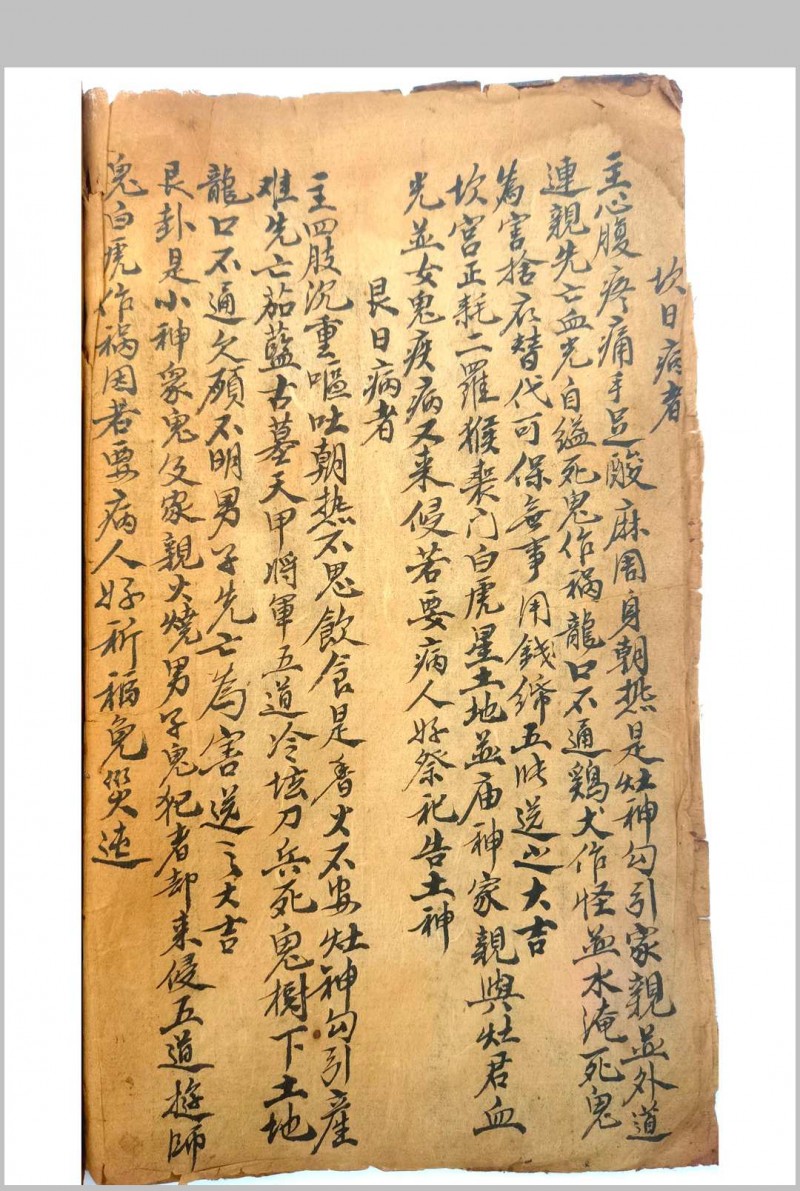 坎日病者
主心腹疼痛手足酸麻周身朝热是灶神勾引家親並外道
連親先亡血光自縊死鬼作禍龍口不通鷄犬作怪並水淹死鬼
為害捨衣替代可保無事用錢綈五張送之大吉
坎宮正耗二羅猴喪门白虎星土地並庙神家親與灶君血
光並女鬼疾病又来侵若要病人好祭祀告土神
艮日病者
主四肢沉重嘔吐朝热不思飲食是香火不安灶神勾引産
难先亡茄藍古墓天甲將軍五道冷坛刀兵死鬼樹下土地
龍口不通欠願不明男子先亡為害送之大吉
艮卦是小神衆鬼及家親火燒男子鬼犯者却来侵五道遊師
鬼白虎作禍因若要病人好祈福免災迍